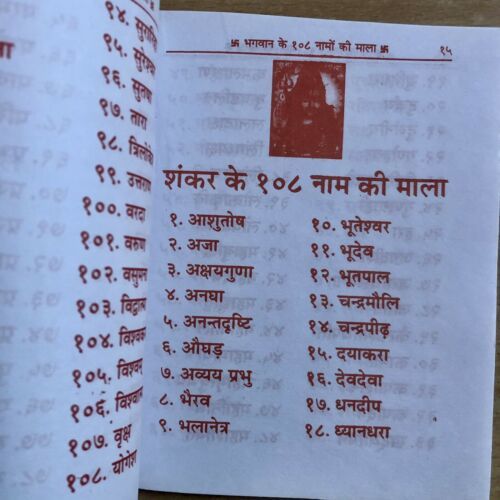 ९४.
९५.
९६. सुतपा
९७. तारा
९८.
९९.
१००. वरदा
१०१. वरुण
१०२.
१०३.
१०४.
१०५.
१०६.
१०७. वृक्ष
१०८. योगेश
卐 भगवान के १०८ नामों की माला 卐 १५
शंकर के १०८ नाम की माला
१. आशुतोष
२. अजा
३. अक्षयगुणा
४. अनघा
५. अनन्तदृष्टि
६. औघड़
७. अव्यय प्रभु
८. भैरव
९. भलानेत्र
१०. भूतेश्वर
११. भूदेव
१२. भूतपाल
१३. चन्द्रमौलि
१४. चन्द्रपीढ़
१५. दयाकरा
१६. देवदेवा
१७. धनदीप
१८. ध्यानधरा